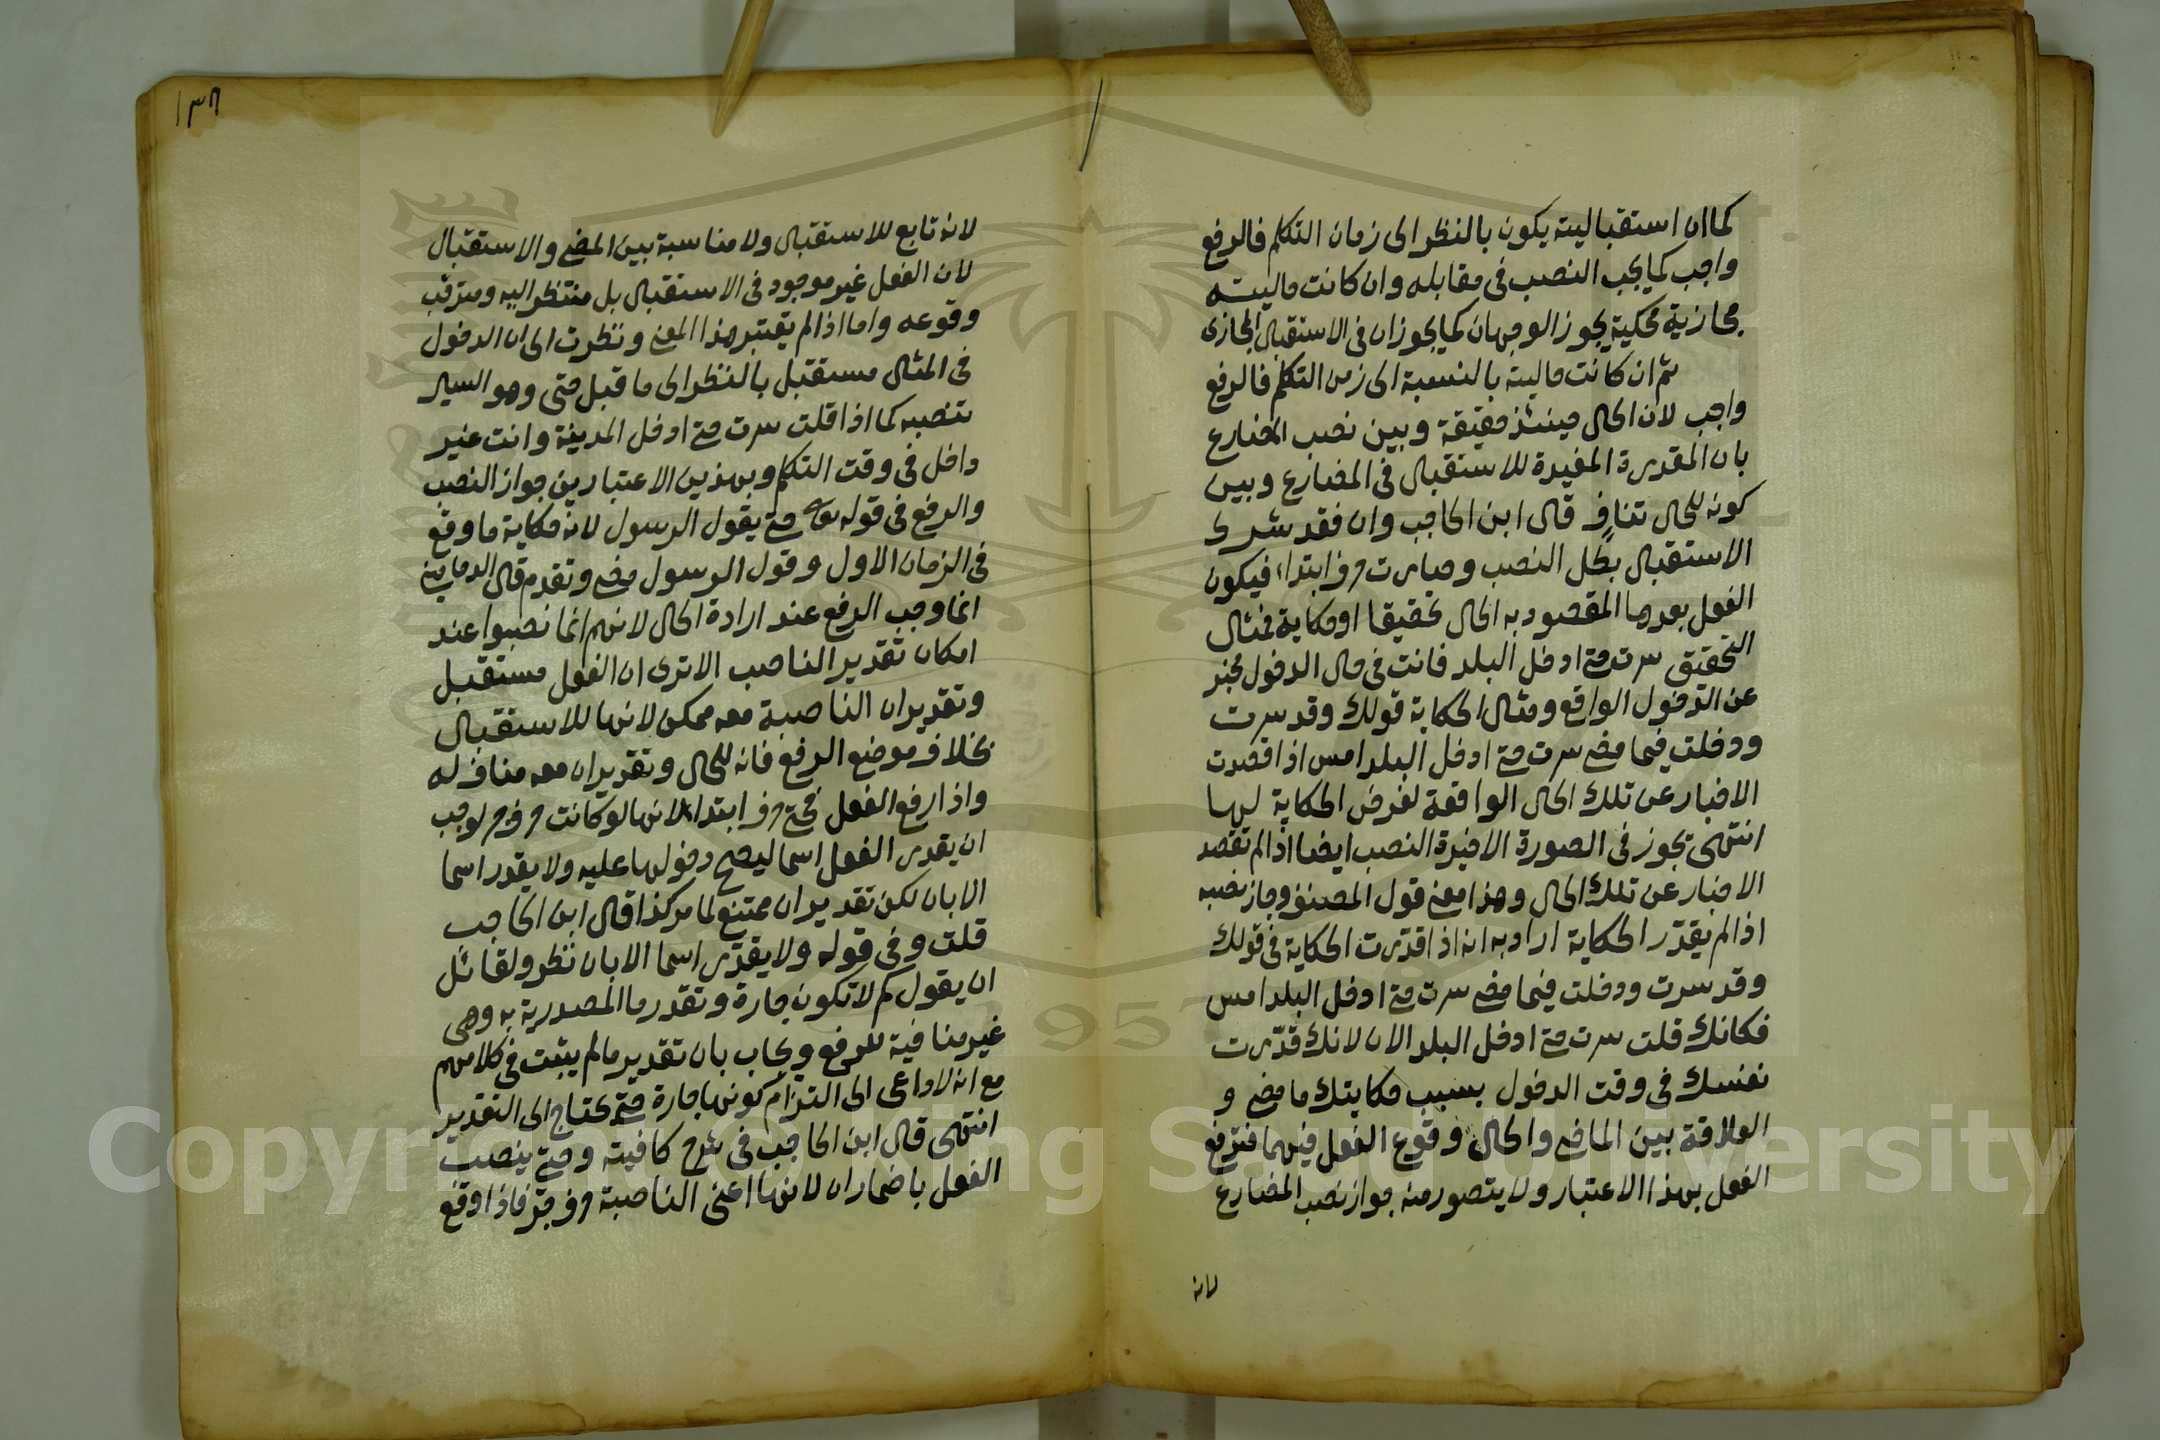 كما ان استقباليته يكون بالنظر الى زمان التكلم فالرفع
واجب كما يجب النصب فى مقابله وان كانت حاليته
مجازية محكية يجوز الوجهان كما يجوزان فى الاستقبال المجازى
ثم ان كانت حاليته بالنسبة الى زمن التكلم فالرفع
واجب لان الحال حينئذ حقيقة وبين نصب المضارع
بان المقدرة المفيدة للاستقبال فى المضارع وبين
كونه للحال تناف قال ابن الحاجب وان فقد شرط
الاستقبال بطل النصب وصارت حرف ابتداء فيكون
الفعل بعدها المقصود به الحال تحقيقا او حكاية فمثال
التحقيق سرت حتى ادخل البلد فانت فى حال الدخول مخبر
عن الدخول الواقع ومثال الحكاية قولك وقد سرت
ودخلت فيما مضى سرت حتى ادخل البلد امس اذا قصدت
الاخبار عن تلك الحال الواقعة لغرض الحكاية لها
انتهى يجوز فى الصورة الاخيرة النصب ايضا اذا لم تقصد
الاخبار عن تلك الحال وهذا معنى قول المصنف وجاز نصبه
اذا لم يقدّر الحكاية اراد به انه اذا قدّرت الحكاية فى قولك
وقد سرت ودخلت فيما مضى سرت حتى ادخل البلد امس
فكانك قلت سرت حتى ادخل البلد الان لانك قدّرت
نفسك فى وقت الدخول بسبب حكايتك ما مضى و
العلاقة بين الماضى والحال وقوع الفعل فيهما فترفع
الفعل بهذا الاعتبار ولا يتصور منه جواز نصب المضارع
لانه
١٣٦
لانه تابع للاستقبال ولا مناسبة بين المضى والاستقبال
لان الفعل غير موجود فى الاستقبال بل منتظر اليه ومترقب
وقوعه واما اذا لم يعتبر هذا المعنى ونظرت الى ان الدخول
فى المثال مستقبل بالنظر الى ما قبل حتى وهو السير
تنصبه كما اذا قلت سرت حتى ادخل المدينة وانت غير
داخل فى وقت التكلم وبهذين الاعتبارين جواز النصب
والرفع فى قوله تعالى حتى يقول الرسول لانه حكاية ما وقع
فى الزمان الاول وقول الرسول مضى وتقدم قال الدمامينى
انما وجب الرفع عند ارادة الحال لانهم انما نصبوا عند
امكان تقدير الناصب الا ترى ان الفعل مستقبل
وتقدير ان الناصبة معه ممكن لانها للاستقبال
بخلاف موضع الرفع فانه للحال وتقدير ان معه مناف له
واذا رفع الفعل فحتى حرف ابتداء لانها لو كانت حرف جر لوجب
ان يقدر الفعل اسما ليصح دخولها عليه ولا يقدر اسما
الا بان لكن تقدير ان ممتنع لما مر كذا قال ابن الحاجب
قلت وفى قوله ولا يقدّر اسما الا بان نظر ولقائل
ان يقول لم لا تكون جارة وتقدر ما المصدرية به وهى
غير منافية للرفع ويجاب بان تقدير ما لم يثبت فى كلامهم
مع انه لا داعى الى التزام كونها جارة حتى يحتاج الى التقدير
انتهى قال ابن الحاجب فى شرح كافيته وحتى ينصب
الفعل باضمار ان لانها اعنى الناصبة حرف جر فاذا وقع
Copyright © King Saud University
1957